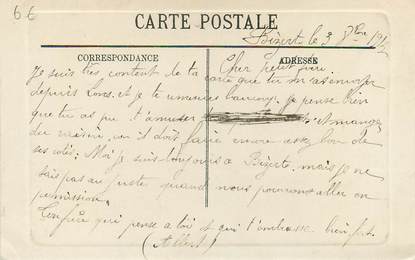 6€
CARTE POSTALE
Bizerte le 3
CORRESPONDANCE
ADRESSE
Cher petit
Je suis très content de ta carte que tu m'as envoyer
depuis Lons. et je te remercie je pense bien
que tu as pu t'amuser
du raisin, car il doit faire encore assez bon de
ses cotés. Moi je suis toujours a Bizerte, mais je ne
sais pas au juste quand nous pourrons aller en
permission.
Ton frère qui pense a toi et qui t'embrasse bien fort.
(Albert)